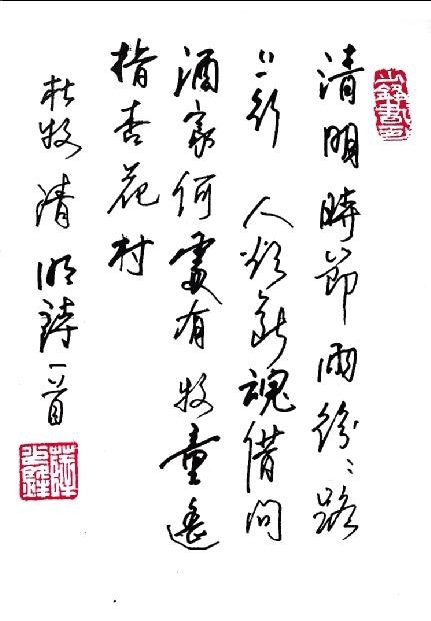 清明時節雨紛〻路
上行人欲断魂借问
酒家何處有牧童遙
指杏花村
杜牧清明詩一首